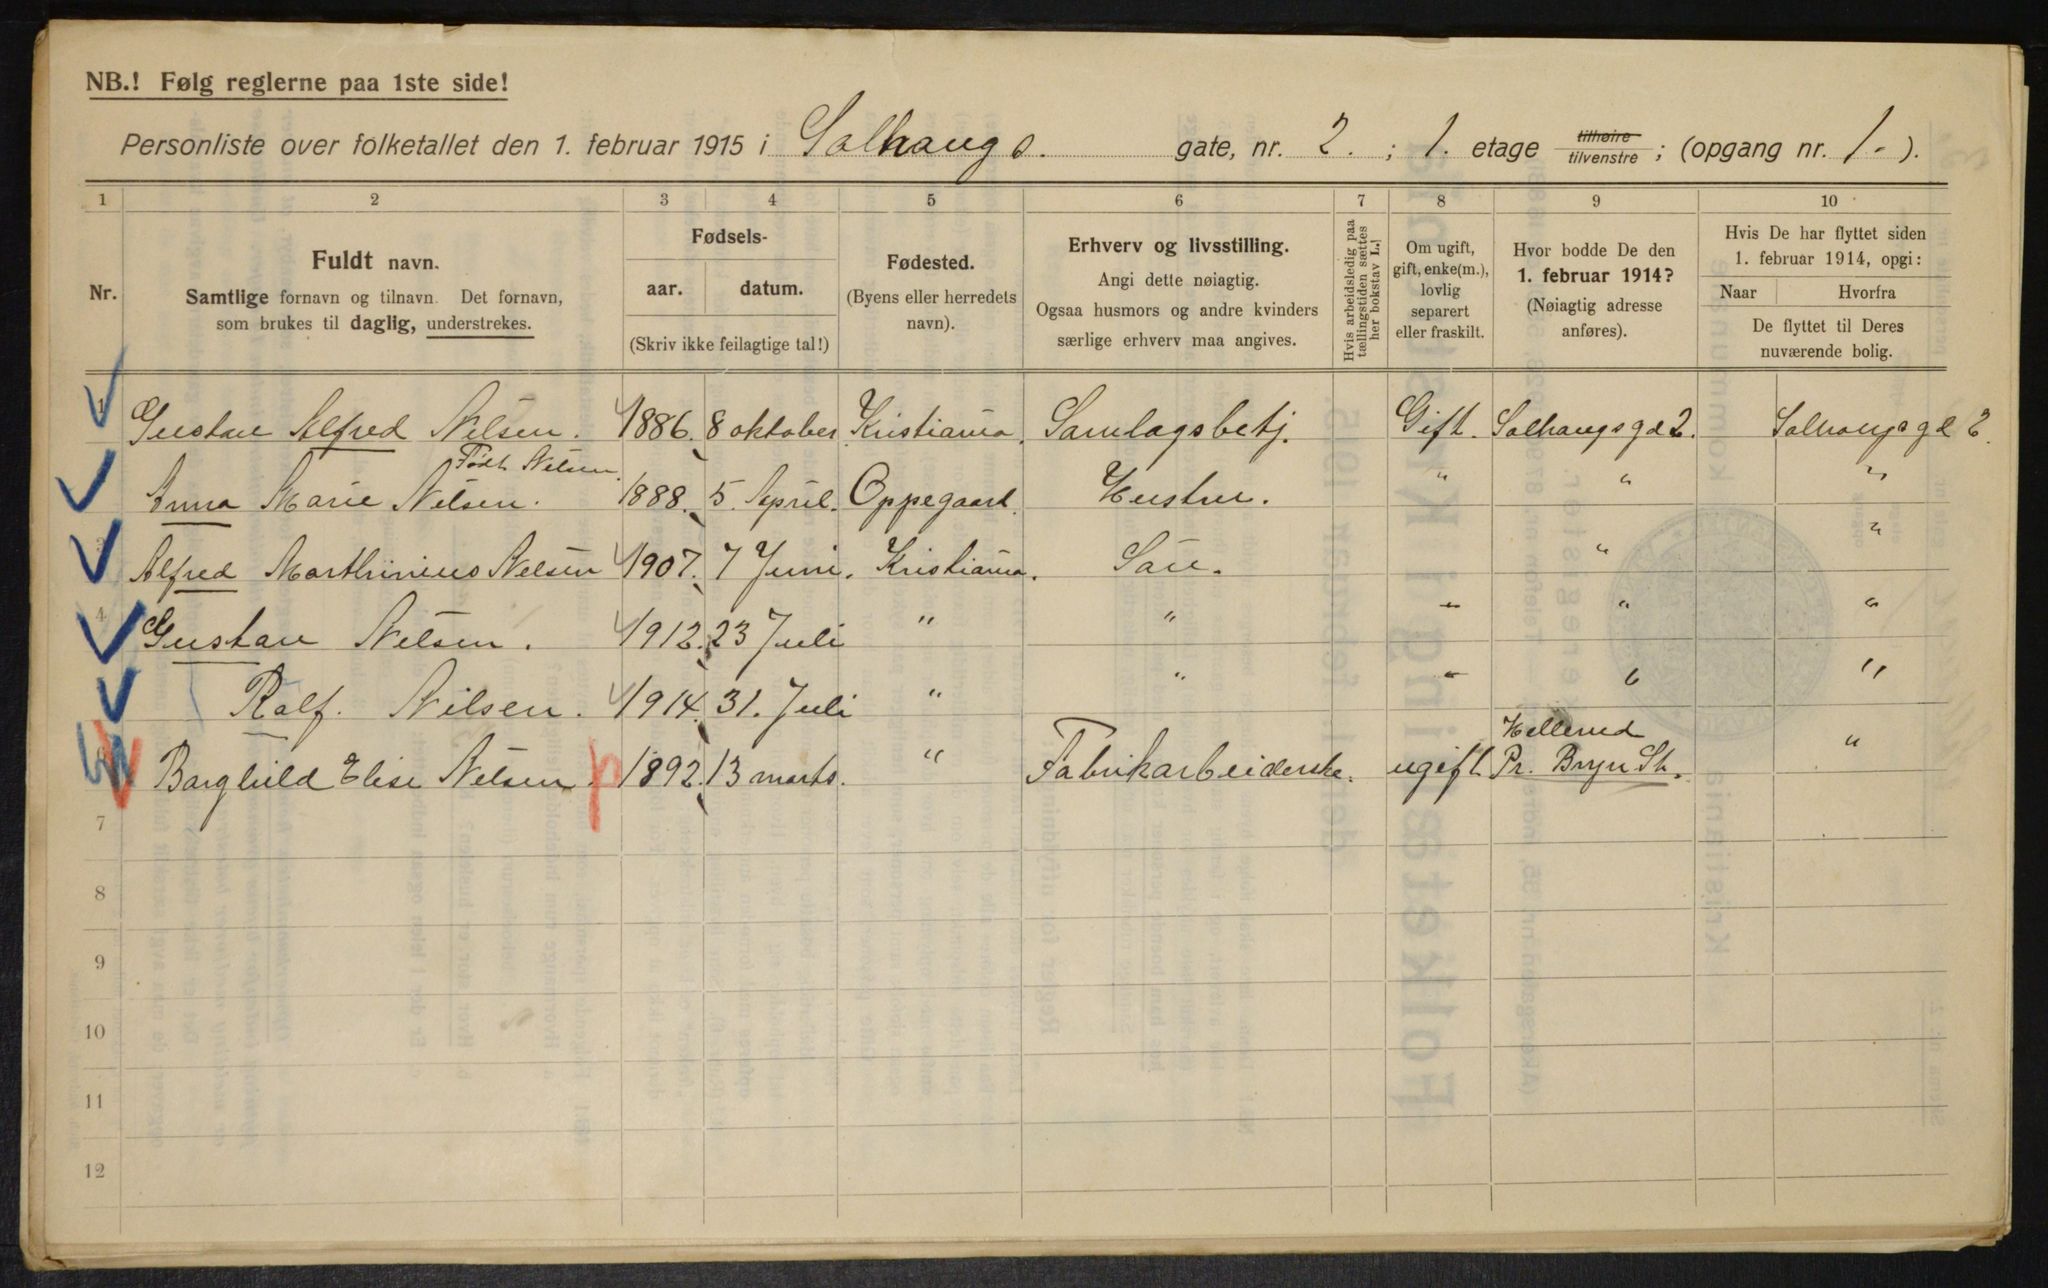 NB.! Følg reglerne paa 1ste side!
Personliste over folketallet den 1. februar 1915 i Solhaugs. gate, nr. 2. ; 1. etage tilhøire tilvenstre ; (opgang nr. 1.- ).
1 2 3 4 5 6 7 8 9 10
Nr.
Fuldt navn.
Samtlige fornavn og tilnavn. Det fornavn,
som brukes til daglig, understrekes.
Fødsels-
aar. datum.
(Skriv ikke feilagtige tal!)
Fødested.
(Byens eller herredets
navn).
Erhverv og livsstilling.
Angi dette nøiagtig.
Ogsaa husmors og andre kvinders
særlige erhverv maa angives.
Hvis arbeidsledig paa
tællingstiden sættes
her bokstav L.!
Om ugift,
gift, enke(m.),
lovlig
separert
eller fraskilt.
Hvor bodde De den
1. februar 1914?
(Nøiagtig adresse
anføres).
Hvis De har flyttet siden
1. februar 1914, opgi:
Naar Hvorfra
De flyttet til Deres
nuværende bolig.
1 Gustav Alfred Nilsen. 1886. 8 oktober Kristiania. Samlagsbetj. Gift. Solhaugsgd 2. Solhaugsgd 2.
Født Nilsen.
Anna Marie Nilsen. 1888. 5. April. Oppegaard. Hustru. " " "
3 Alfred Marthinius Nilsen 1907. 7 Juni. Kristiania. Sön. " "
4 Gustav Nilsen. 1912. 23 Juli " " " " "
Ralf. Nilsen. 1914. 31. Juli " " " " "
Hellerud
6 Borghild Elise Nilsen. 1892. 13 marts. " Fabrikarbeiderske. ugift. Pr. Bryn St. "
7
8
9
10
11
12